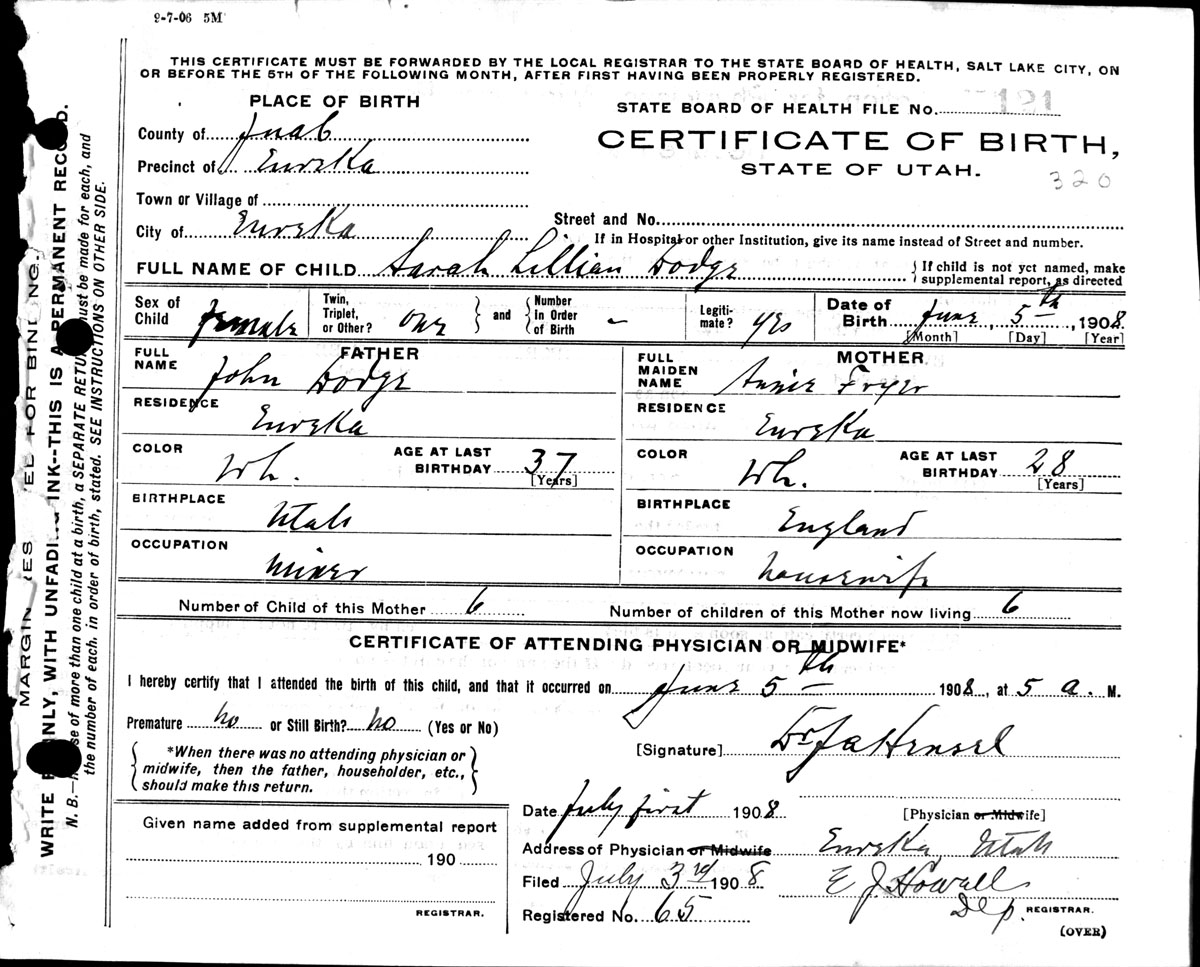 9-7-06 5M
THIS CERTIFICATE MUST BE FORWARDED BY THE LOCAL REGISTRAR TO THE STATE BOARD OF HEALTH, SALT LAKE CITY, ON
OR BEFORE THE 5TH OF THE FOLLOWING MONTH, AFTER FIRST HAVING BEEN PROPERLY REGISTERED.
PLACE OF BIRTH
County of Juab
Precinct of Eureka
Town or Village of
City of Eureka
STATE BOARD OF HEALTH FILE No. 121
CERTIFICATE OF BIRTH,
STATE OF UTAH.
320
Street and No.
If in Hospital or other Institution, give its name instead of Street and number.
FULL NAME OF CHILD Sarah Lillian Dodge
If child is not yet named, make
supplemental report, as directed
Sex of Child female
Twin, Triplet, or Other? one
and
Number In Order of Birth –
Legitimate? yes
Date of Birth June 5th, 1908.
[Month] [Day] [Year]
FATHER
FULL NAME John Dodge
RESIDENCE Eureka
COLOR Wh.
AGE AT LAST BIRTHDAY 37
[Years]
BIRTHPLACE Utah
OCCUPATION miner
MOTHER
FULL MAIDEN NAME Annie Fryer
RESIDENCE Eureka
COLOR Wh.
AGE AT LAST BIRTHDAY 28
[Years]
BIRTHPLACE England
OCCUPATION housewife
Number of Child of this Mother 6
Number of children of this Mother now living 6
CERTIFICATE OF ATTENDING PHYSICIAN OR MIDWIFE*
I hereby certify that I attended the birth of this child, and that it occurred on June 5th 1908, at 5 a. M.
Premature no or Still Birth? no (Yes or No)
*When there was no attending physician or
midwife, then the father, householder, etc.,
should make this return.
[Signature] Dr J a Hensel
Date July first 1908
[Physician or Midwife]
Address of Physician or Midwife Eureka, Utah
Filed July 3rd 1908 E J Howall
Dep. REGISTRAR.
Registered No. 65
(OVER)
Given name added from supplemental report
190
REGISTRAR.
WRITE INLY, WITH UNFADI INK--THIS IS A PERMANENT RECORD.
N. B.— se of more than one child at a birth, a SEPARATE RETU must be made for each, and
the number of each, in order of birth, stated. SEE INSTRUCTIONS ON OTHER SIDE.